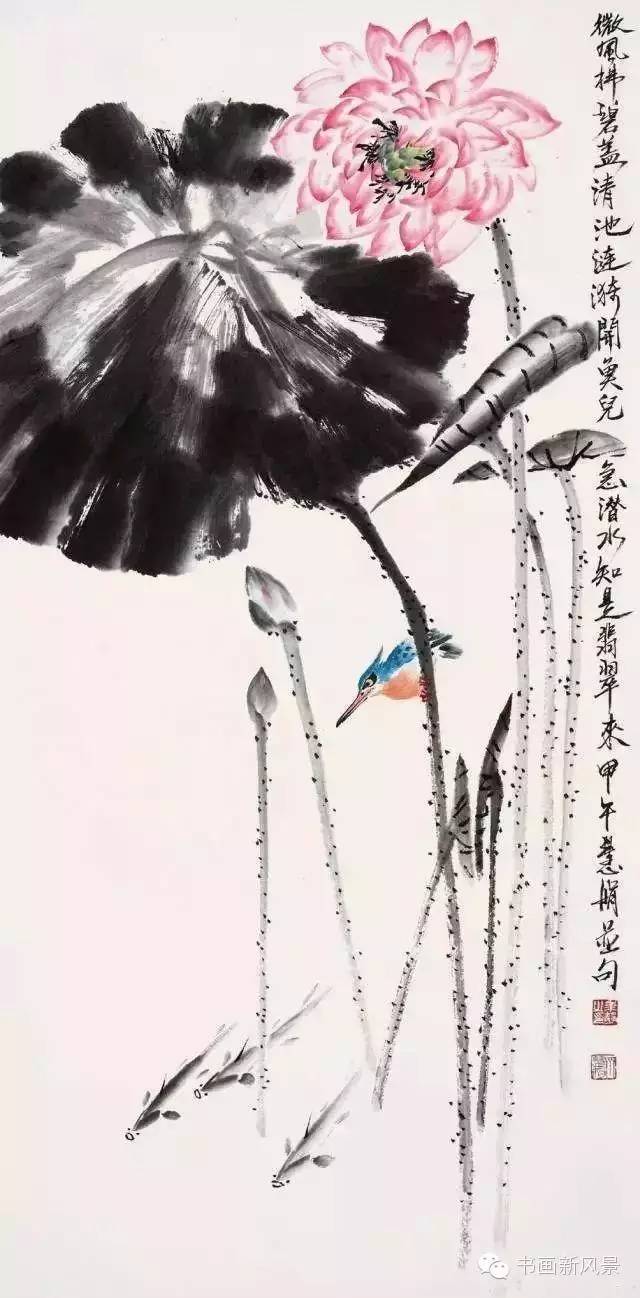 微風拂碧蓋清池漣漪開魚兒急潜水知是翡翠來甲午慧娟並句
书画新风景